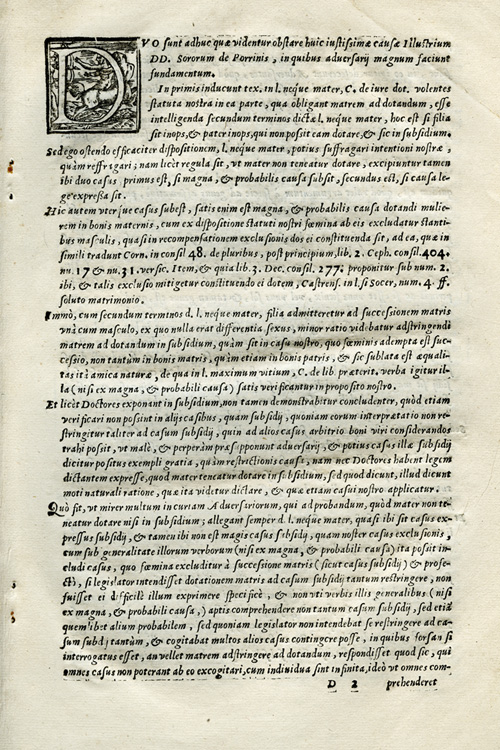 DVO sunt adhuc quæ videntur obstare huic iustissimæ causæ Illustrium
DD. Sororum de Porrinis, in quibus aduersarij magnum faciunt
fundamentum.
In primis inducunt tex. in l. neque mater, C. de iure dot. volentes
statuta nostra in ea parte, qua obligant matrem ad dotandum, esse
intelligenda secundum terminos dictæ l. neque mater, hoc est si filia
sit inops, & pater inops, qui non possit eam dotare, & sic in subsidium.
Sed ego ostendo efficaciter dispositionem, l. neque mater, potius suffragari intentioni nostræ,
quàm reffragari; nam licèt regula sit, vt mater non teneatur dotare, excipiuntur tamen
ibi duo casus primus est, si magna, & probabilis causa subsit, secundus est, si causa le-
ge expressa sit.
Hic autem vterque casus subest, satis enim est magna, & probabilis causa dotandi mulie-
rem in bonis maternis, cum ex dispositione statuti nostri fœmina ab eis excludatur stanti-
bus masculis, quasi in recompensationem exclusionis dos ei constituenda sit, ad ea, quæ in
simili tradunt Corn. in consil 48. de pluribus, post principium, lib. 2. Ceph. consil. 404.
nu. 17 & nu. 31. versic. Item, & quia lib. 3. Dec. consil. 277. proponitur sub num. 2.
ibi, & talis exclusio mitigetur constituendo ei dotem, Castrens. in l. si Socer, num. 4. ff.
soluto matrimonio.
Immò, cum secundum terminos d. l. neque mater, filia admitteretur ad successionem matris
vnà cum masculo, ex quo nulla erat differentia sexus, minor ratio videbatur adstringendi
matrem ad dotandum in subsidium, quàm sit in casu nostro, quo fœminis adempta est suc-
cessio, non tantùm in bonis matris, quàm etiam in bonis patris, & sic sublata est æquali-
tas ità amica naturæ, de qua in l. maximum vitium, C. de lib. præterit. verba igitur il-
la (nisi ex magna, & probabili causa) satis verificantur in proposito nostro.
Et licèt Doctores exponant in subsidium, non tamen demonstrabitur concludenter, quòd etiam
verificari non possint in alijs casibus, quam subsidij, quoniam eorum interpretatio non re-
stringitur taliter ad casum subsidij, quin ad alios casus arbitrio boni viri considerandos
trahi possit, vt malè, & perperàm præsupponunt aduersarij, & potius casus illæ subsidij
dicitur positus exempli gratia, quàm restrictionis causa, nam nec Doctores habent legem
dictantem expresse, quod mater teneatur dotare in subsidium, sed quod dicunt, illud dicunt
moti naturali ratione, quæ ita videtur dictare, & quæ etiam casui nostro applicatur.
Quò fit, vt mirer multum in curiam Aduersariorum, qui ad probandum, quòd mater non te-
neatur dotare nisi in subsidium; allegant semper d. l. neque mater, quasi ibi sit casus ex-
pressus subsidij, & tamen ibi non est magis casus subsidij, quam noster casus exclusionis,
cum sub generalitate illorum verborum (nisi ex magna, & probabili causa) ita possit in-
cludi casus, quo fœmina excluditur à successione matris (sicut casus subsidij) & profe-
ctò, si legislator intendisset dotationem matris ad casum subsidij tantum restringere, non
fuisset ei difficilè illum exprimere specificè, & non vti verbis illis generalibus (nisi
ex magna, & probabili causa,) aptis comprehendere non tantum casum subsidij, sed etiã
quemlibet alium probabilem, sed quoniam legislator non intendebat se restringere ad ca-
sum subdj tantùm, & cogitabat multos alios casus contingere posse, in quibus forsan si
interrogatus esset, an vellet matrem adstringere ad dotandum, respondisset quod sic, qui
omnes casus non poterant ab eo excogitari, cum indiuidua sint infinita, ideò vt omnes com-
D 2 prehenderet